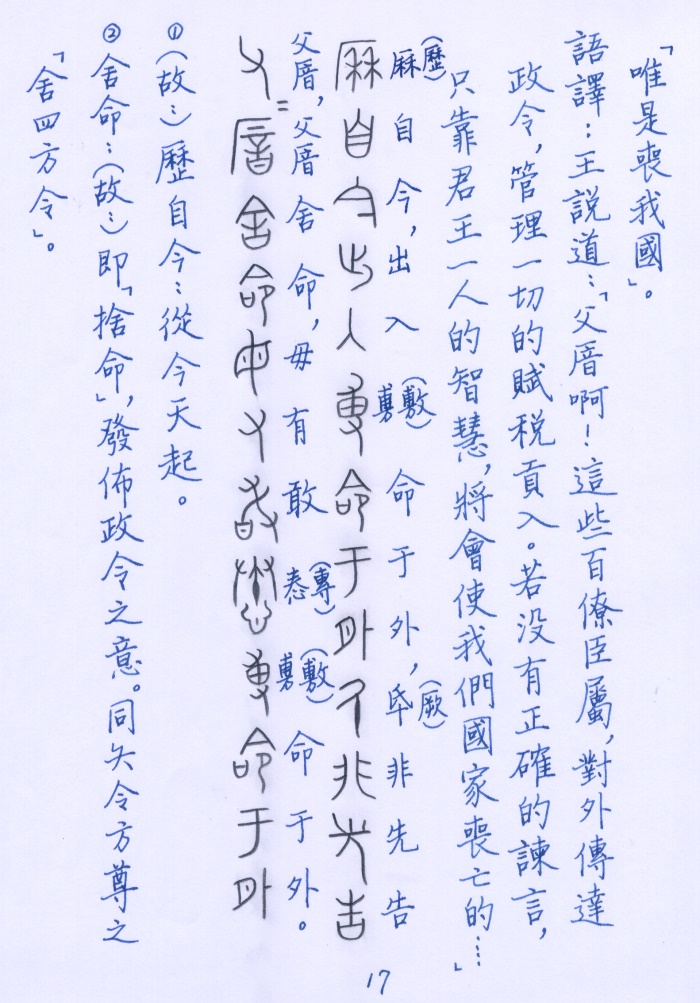 「唯是喪我國」。
語譯：王說道：「父厝啊！這些百僚臣屬，對外傳達
政令，管理一切的賦稅貢入。若沒有正確的諫言，
只靠君王一人的智慧，將會使我們國家喪亡的……」
厤(歷)自今，出入尃(敷)命于外，氒(厥)非先告
厤自今出入尃命于外氒非先告
父厝，父厝舍命，毋有敢惷(專)尃(敷)命于外。
父厝=舍命毋又敢惷尃命于外
①(故：)歷自今：從今天起。
②舍命：(故：)即「捨命」，發佈政令之意。同夨令方尊之
「舍四方令」。
17